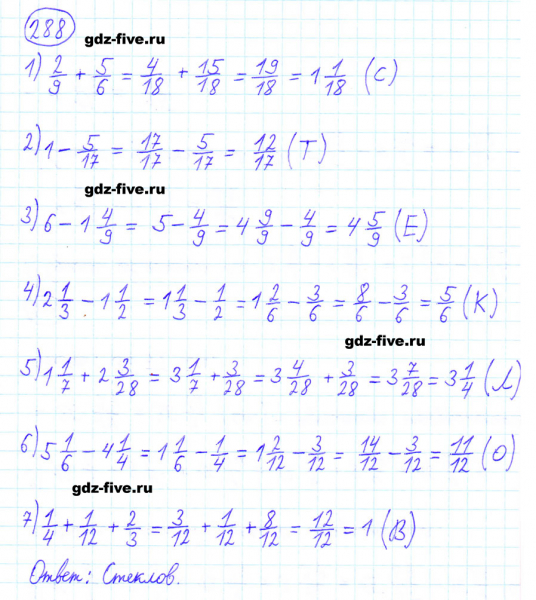 288
gdz-five.ru
1) 2/9 + 5/6 = 4/18 + 15/18 = 19/18 = 1 1/18 (С)
2) 1 - 5/17 = 17/17 - 5/17 = 12/17 (Т)
gdz-five.ru
3) 6 - 1 4/9 = 5 - 4/9 = 4 9/9 - 4/9 = 4 5/9 (Е)
4) 2 1/3 - 1 1/2 = 1 1/3 - 1/2 = 1 2/6 - 3/6 = 8/6 - 3/6 = 5/6 (К)
gdz-five.ru
5) 1 1/7 + 2 3/28 = 3 1/7 + 3/28 = 3 4/28 + 3/28 = 3 7/28 = 3 1/4 (Л)
6) 5 1/6 - 4 1/4 = 1 1/6 - 1/4 = 1 2/12 - 3/12 = 14/12 - 3/12 = 11/12 (О)
gdz-five.ru
7) 1/4 + 1/12 + 2/3 = 3/12 + 1/12 + 8/12 = 12/12 = 1 (В)
Ответ: Стеклов.